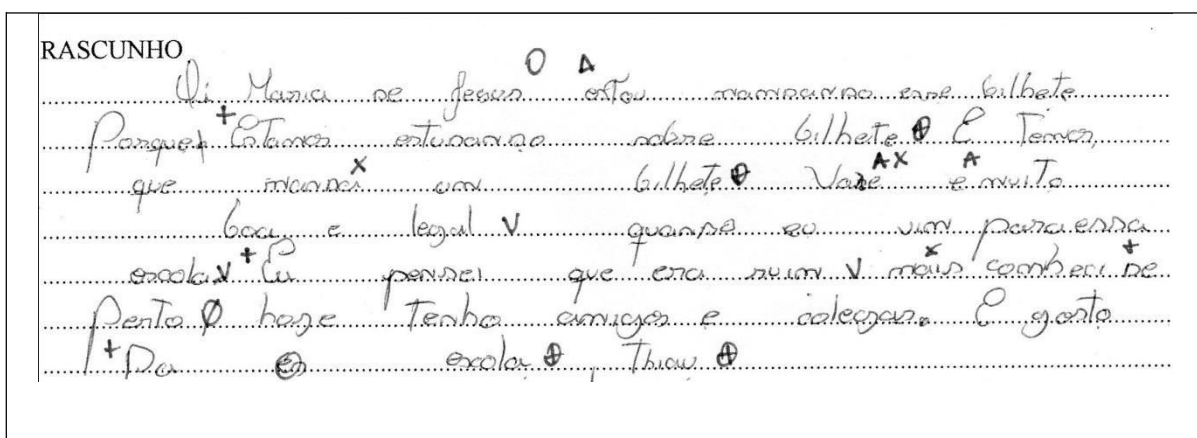 RASCUNHO
O A
Oi Maria de Jesus estou mamdanno esse bilhete
Porque + Estamos estudanno sobre bilhete ⊕ E Temos,
que manda x um bilhete ⊕ Vaze A X e A muito
boa e legal V quande eu vim para essa
escola V + Eu pensei que era ruim V mais x conheci + de
Perto Ø hoze Tenho amigos e colegas. E gosto
+ Da escola ⊕ Thiau ⊕